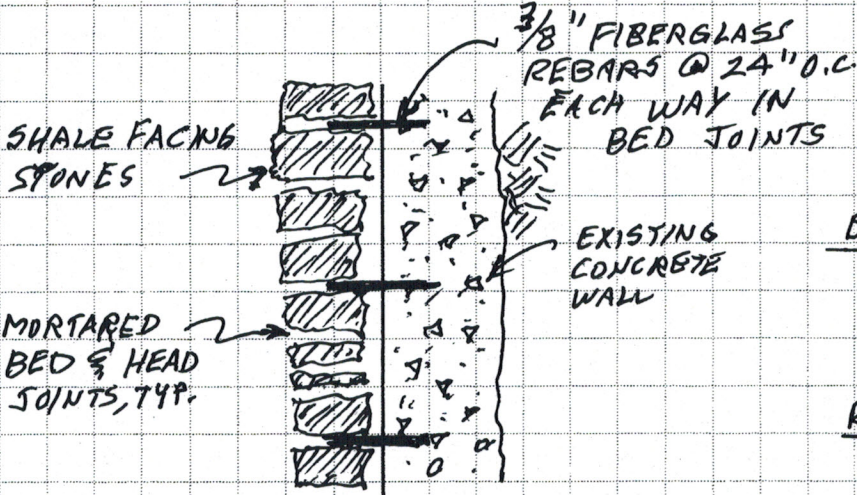 3/8" FIBERGLASS
REBARS @ 24" O.C.
EACH WAY IN
BED JOINTS
SHALE FACING
STONES
EXISTING
CONCRETE
WALL
MORTARED
BED & HEAD
JOINTS, TYP.